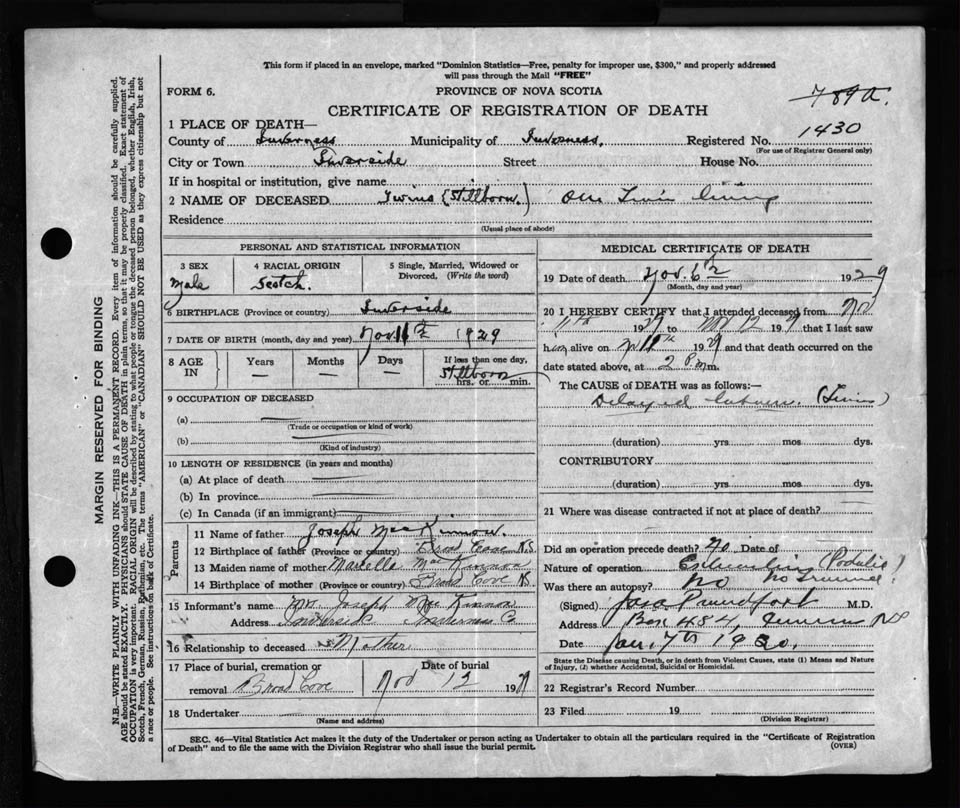 This form if placed in an envelope, marked "Dominion Statistics—Free, penalty for improper use, $300," and properly addressed
will pass through the Mail "FREE"
FORM 6.
PROVINCE OF NOVA SCOTIA
789a.
CERTIFICATE OF REGISTRATION OF DEATH
1430
1 PLACE OF DEATH—
County of Inverness Municipality of Inverness. Registered No.
(For use of Registrar General only)
City or Town Inverside Street House No.
If in hospital or institution, give name
2 NAME OF DECEASED Twins (Stillborn.) One Twin living
Residence
(Usual place of abode)
PERSONAL AND STATISTICAL INFORMATION
3 SEX
Male
4 RACIAL ORIGIN
Scotch.
5 Single, Married, Widowed or
Divorced, (Write the word)
6 BIRTHPLACE (Province or country) Inverside
7 DATE OF BIRTH (month, day and year) Nov 1929
8 AGE
IN
Years
—
Months
—
Days
—
If less than one day,
Stillborn
hrs. or min.
9 OCCUPATION OF DECEASED
(a)
(Trade or occupation or kind of work)
(b)
(Kind of industry)
10 LENGTH OF RESIDENCE (in years and months)
(a) At place of death
(b) In province
(c) In Canada (if an immigrant)
Parents
11 Name of father Joseph MacKinnon.
12 Birthplace of father (Province or country) Broad Cove N.S
13 Maiden name of mother MacKinnon
14 Birthplace of mother (Province or country) Broad Cove NS
15 Informant's name Mrs Joseph MacKinnon
Address Inverside Inverness Co
16 Relationship to deceased Mother
17 Place of burial, cremation or
removal Broad Cove
Date of burial
Nov 12 1929
18 Undertaker
(Name and address)
MEDICAL CERTIFICATE OF DEATH
19 Date of death Nov. 1929
(Month, day and year)
20 I HEREBY CERTIFY that I attended deceased from Nov
11th 1929 to Nov 12 19 that I last saw
h alive on 1929 and that death occurred on the
date stated above, at 2 P.m m.
The CAUSE of DEATH was as follows:—
Delayed labour. (Twins)
(duration) yrs mos dys.
CONTRIBUTORY
(duration) yrs mos dys.
21 Where was disease contracted if not at place of death?
Did an operation precede death? No Date of
Nature of operation (Podalic)
Was there an autopsy? No
(Signed) M.D.
Address Box 484, Inverness NS
Date Jan. 7th 1930.
State the Disease causing Death, or in death from Violent Causes, state (1) Means and Nature
of Injury, (2) whether Accidental, Suicidal or Homicidal.
22 Registrar's Record Number
23 Filed 19
(Division Registrar)
SEC. 46—Vital Statistics Act makes it the duty of the Undertaker or person acting as Undertaker to obtain all the particulars required in the "Certificate of Registration
of Death" and to file the same with the Division Registrar who shall issue the burial permit.
(OVER)
MARGIN RESERVED FOR BINDING
N.B.—WRITE PLAINLY WITH UNFADING INK—THIS IS A PERMANENT RECORD. Every item of information should be carefully supplied.
AGE should be stated EXACTLY. PHYSICIANS should STATE CAUSE OF DEATH in plain terms, so that it may be properly classified. Exact statement of
OCCUPATION is very important. RACIAL ORIGIN will be described by stating to what people or tongue the deceased person belonged, whether English, Irish,
Scotch, French, German, Russian, Ruthenian, etc. The terms "AMERICAN" or "CANADIAN" SHOULD NOT BE USED as they express citizenship but not
a race or people. See instructions on back of Certificate.